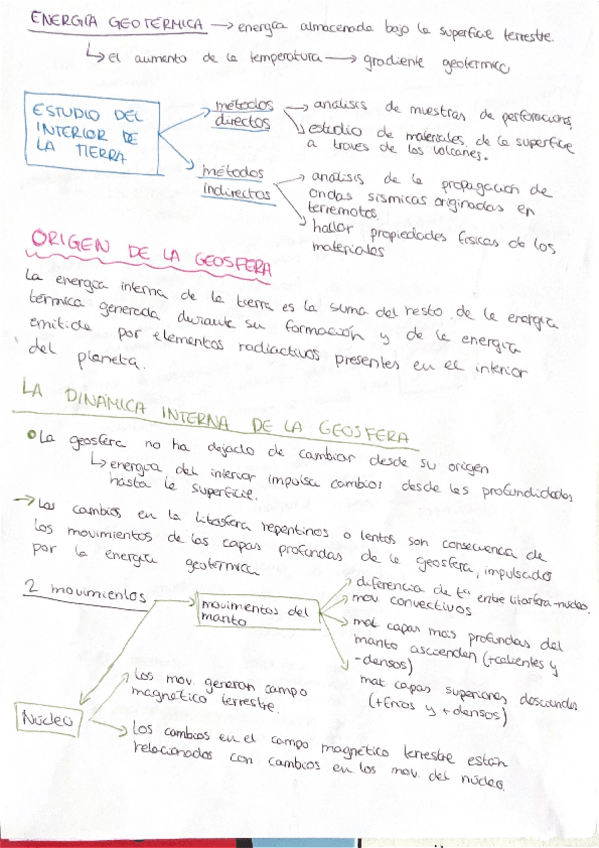 ENERGÍA GEOTÉRMICA → energía almacenada bajo la superficie terrestre.
↳ el aumento de la temperatura → gradiente geotérmico
ESTUDIO DEL
INTERIOR DE
LA TIERRA
métodos
directos
→ análisis de muestras de perforaciones,
→ estudio de materiales de la superficie
a través de los volcanes.
métodos
indirectos
→ análisis de la propagación de
ondas sísmicas originadas en
terremotos.
→ hallar propiedades físicas de los
materiales
ORIGEN DE LA GEOSFERA
La energía interna de la tierra es la suma del resto de la energía
térmica generada durante su formación y de la energía
emitida por elementos radiactivos presentes en el interior
del planeta.
LA DINÁMICA INTERNA DE LA GEOSFERA
• La geosfera no ha dejado de cambiar desde su origen
↳ energía del interior impulsa cambios desde las profundidades
hasta la superficie.
→ Los cambios en la litosfera repentinos o lentos son consecuencia de
los movimientos de las capas profundas de la geosfera, impulsados
por la energía geotérmica
2 movimientos
movimentos del
manto
→ diferencia de tª entre litosfera-núcleo.
→ mov. convectivos
→ mat capas más profundas del
manto ascienden (+calientes y
-densos)
mat capas superiores descienden
(+fríos y +densos)
Núcleo
→ Los mov. generan campo
magnético terrestre.
→ Los cambios en el campo magnético terrestre están
relacionados con cambios en los mov. del núcleo.